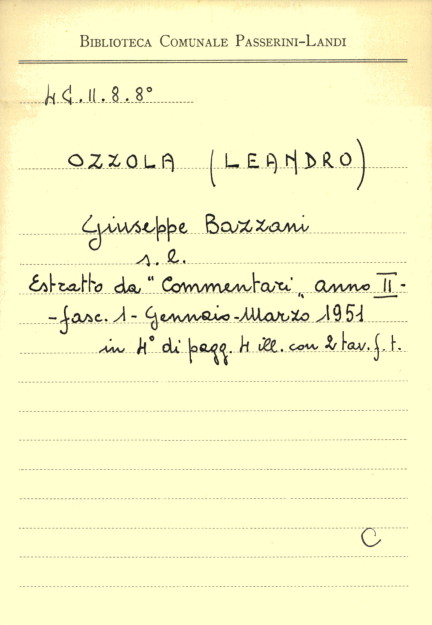 BIBLIOTECA COMUNALE PASSERINI-LANDI
4G.II.8.8°
OZZOLA (LEANDRO)
Giuseppe Bazzani
s. l.
Estratto da "Commentari" anno II-
-fasc. 1- Gennaio-Marzo 1951
in 4° di pagg. 4 ill. con 2 tav. f. t.
C